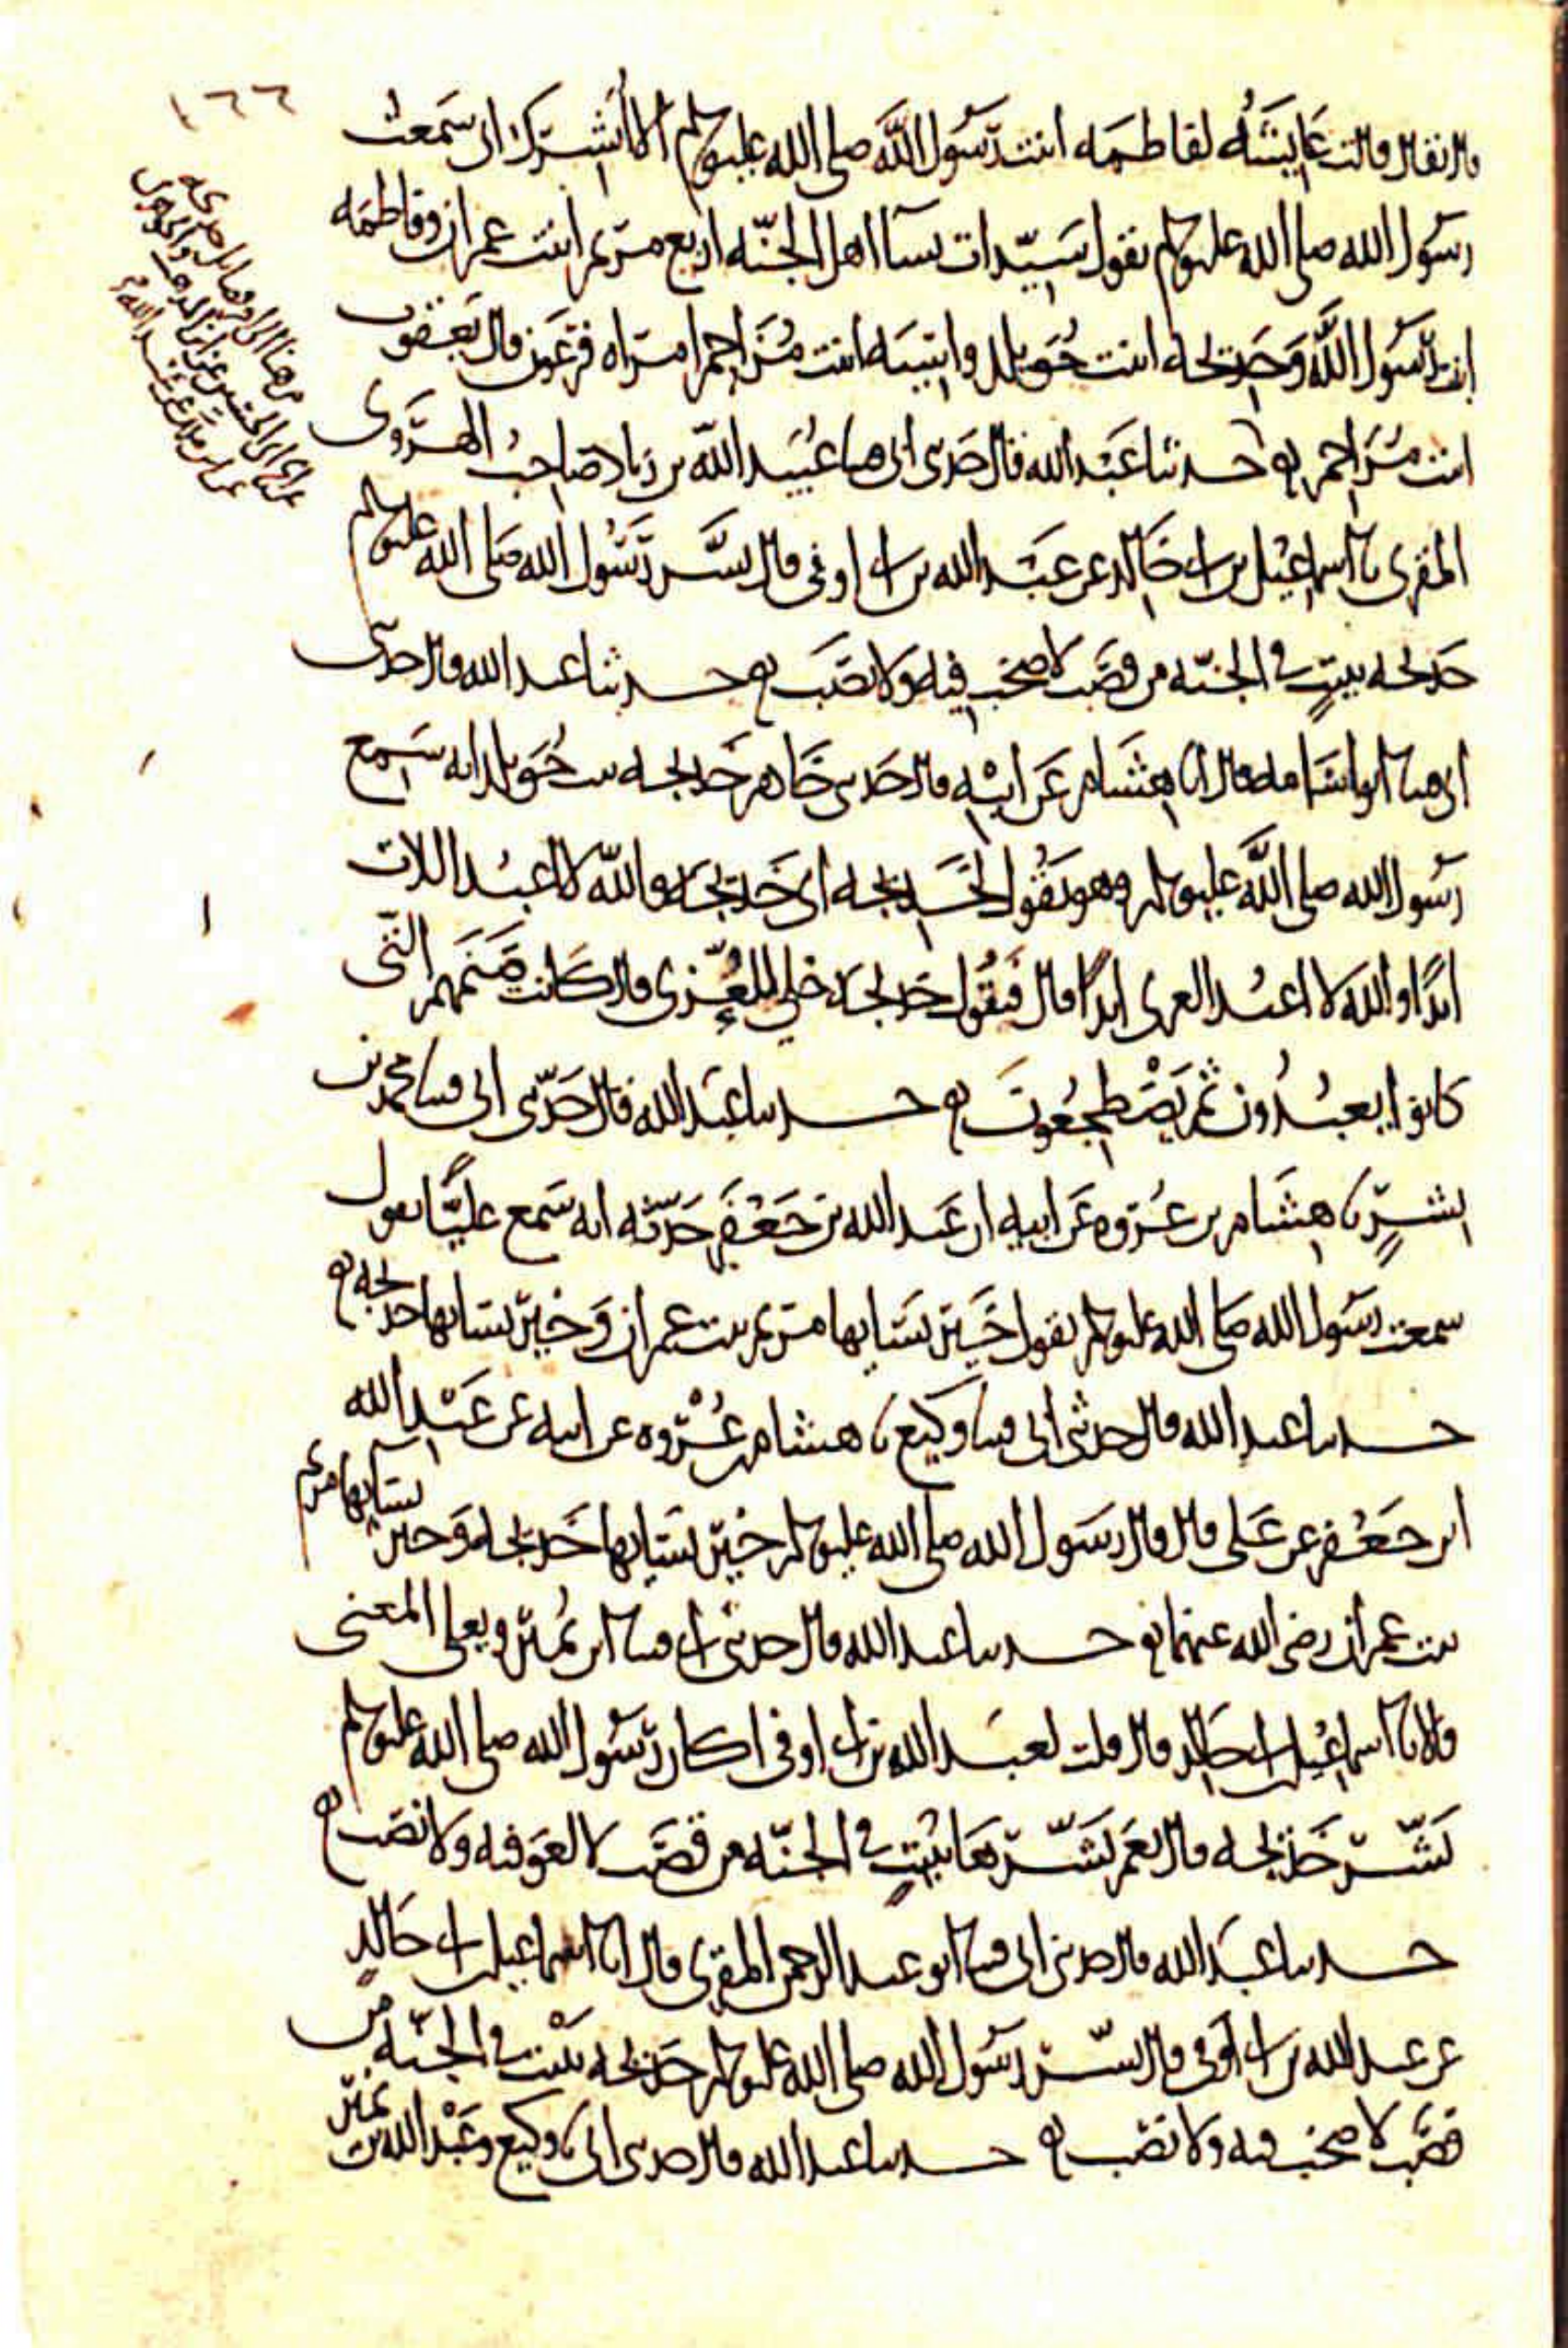 ١٦٦
قال فقال قالت عايشه لفاطمه ابنت رسول الله صلى الله عليه وسلم الا ابشرك اني سمعت
رسول الله صلى الله عليه وسلم يقول سيدات نسا اهل الجنه اربع مريم ابنت عمران وفاطمه
ابنت رسول الله وخديجه ابنت خويلد واسيه ابنت مزاحم امراه فرعون قال يعقوب
ابنت مزاحم حدثنا عبد الله قال حدثني ابي قثنا عبيد الله بن زياد صاحب الهروى
المقرى نا اسماعيل بن ابي خالد عن عبد الله بن ابي اوفى قال بشر رسول الله صلى الله عليه وسلم
خديجه ببيت في الجنه من قصب لا صخب فيه ولا نصب حدثنا عبد الله قال حدثني
ابي قثنا ابو اسامه قال انا هشام عن ابيه قال حدثني جار خديجه بنت خويلد انه سمع
رسول الله صلى الله عليه وسلم وهو يقول لخديجه اى خديجه والله لا اعبد اللات
ابدا والله لا اعبد العزى ابدا قال فتقول خديجه خلي العزى قال كانت صنمهم التي
كانوا يعبدون ثم يضطجعون حدثنا عبد الله قال حدثني ابي قثنا محمد بن
بشر نا هشام بن عروه عن ابيه ان عبد الله بن جعفر حدثه انه سمع عليا يقول
سمعت رسول الله صلى الله عليه وسلم يقول خير نسايها مريم بنت عمران وخير نسايها خديجه
حدثنا عبد الله قال حدثني ابي قثنا وكيع نا هشام بن عروه عن ابيه عن عبد الله
ابن جعفر عن على قال قال رسول الله صلى الله عليه وسلم خير نسايها خديجه وخير نسايها مريم
بنت عمران رضي الله عنهما حدثنا عبد الله قال حدثني ابي قثنا ابن نمير ويعلى المعنى
قالا نا اسماعيل بن ابي خالد قال قلت لعبد الله بن ابي اوفى اكان رسول الله صلى الله عليه وسلم
بشر خديجه قال نعم بشرها ببيت في الجنه من قصب لا لغو فيه ولا نصب
حدثنا عبد الله قال حدثني ابي قثنا ابو عبد الرحمن المقرى قال انا اسماعيل بن ابي خالد
عن عبد الله بن ابي اوفى قال بشر رسول الله صلى الله عليه وسلم خديجه ببيت في الجنه من
قصب لا صخب فيه ولا نصب حدثنا عبد الله قال حدثني ابي نا وكيع وعبد الله بن نمير